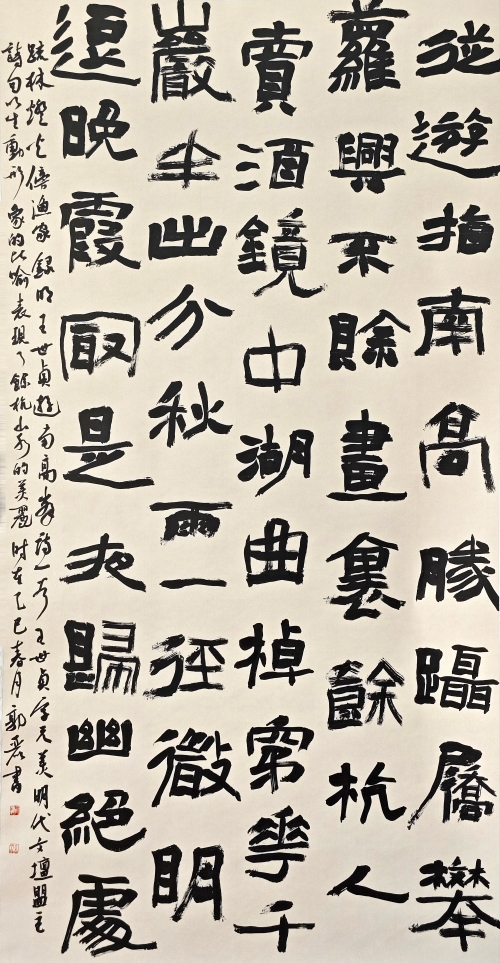 從遊指南高勝躡屩攀
蘿興不賖畫裏餘杭人
賣酒鏡中湖曲棹穿華千
巖半出分秋雨一徑微明
逗晚霞最是夜歸幽絕處
疏林燈火傍漁家錄明王世貞遊南高峯詩一首王世貞字元美明代文壇盟主
詩句以生動形象的比喻表現了餘杭山水的美麗時在乙巳春月郭書